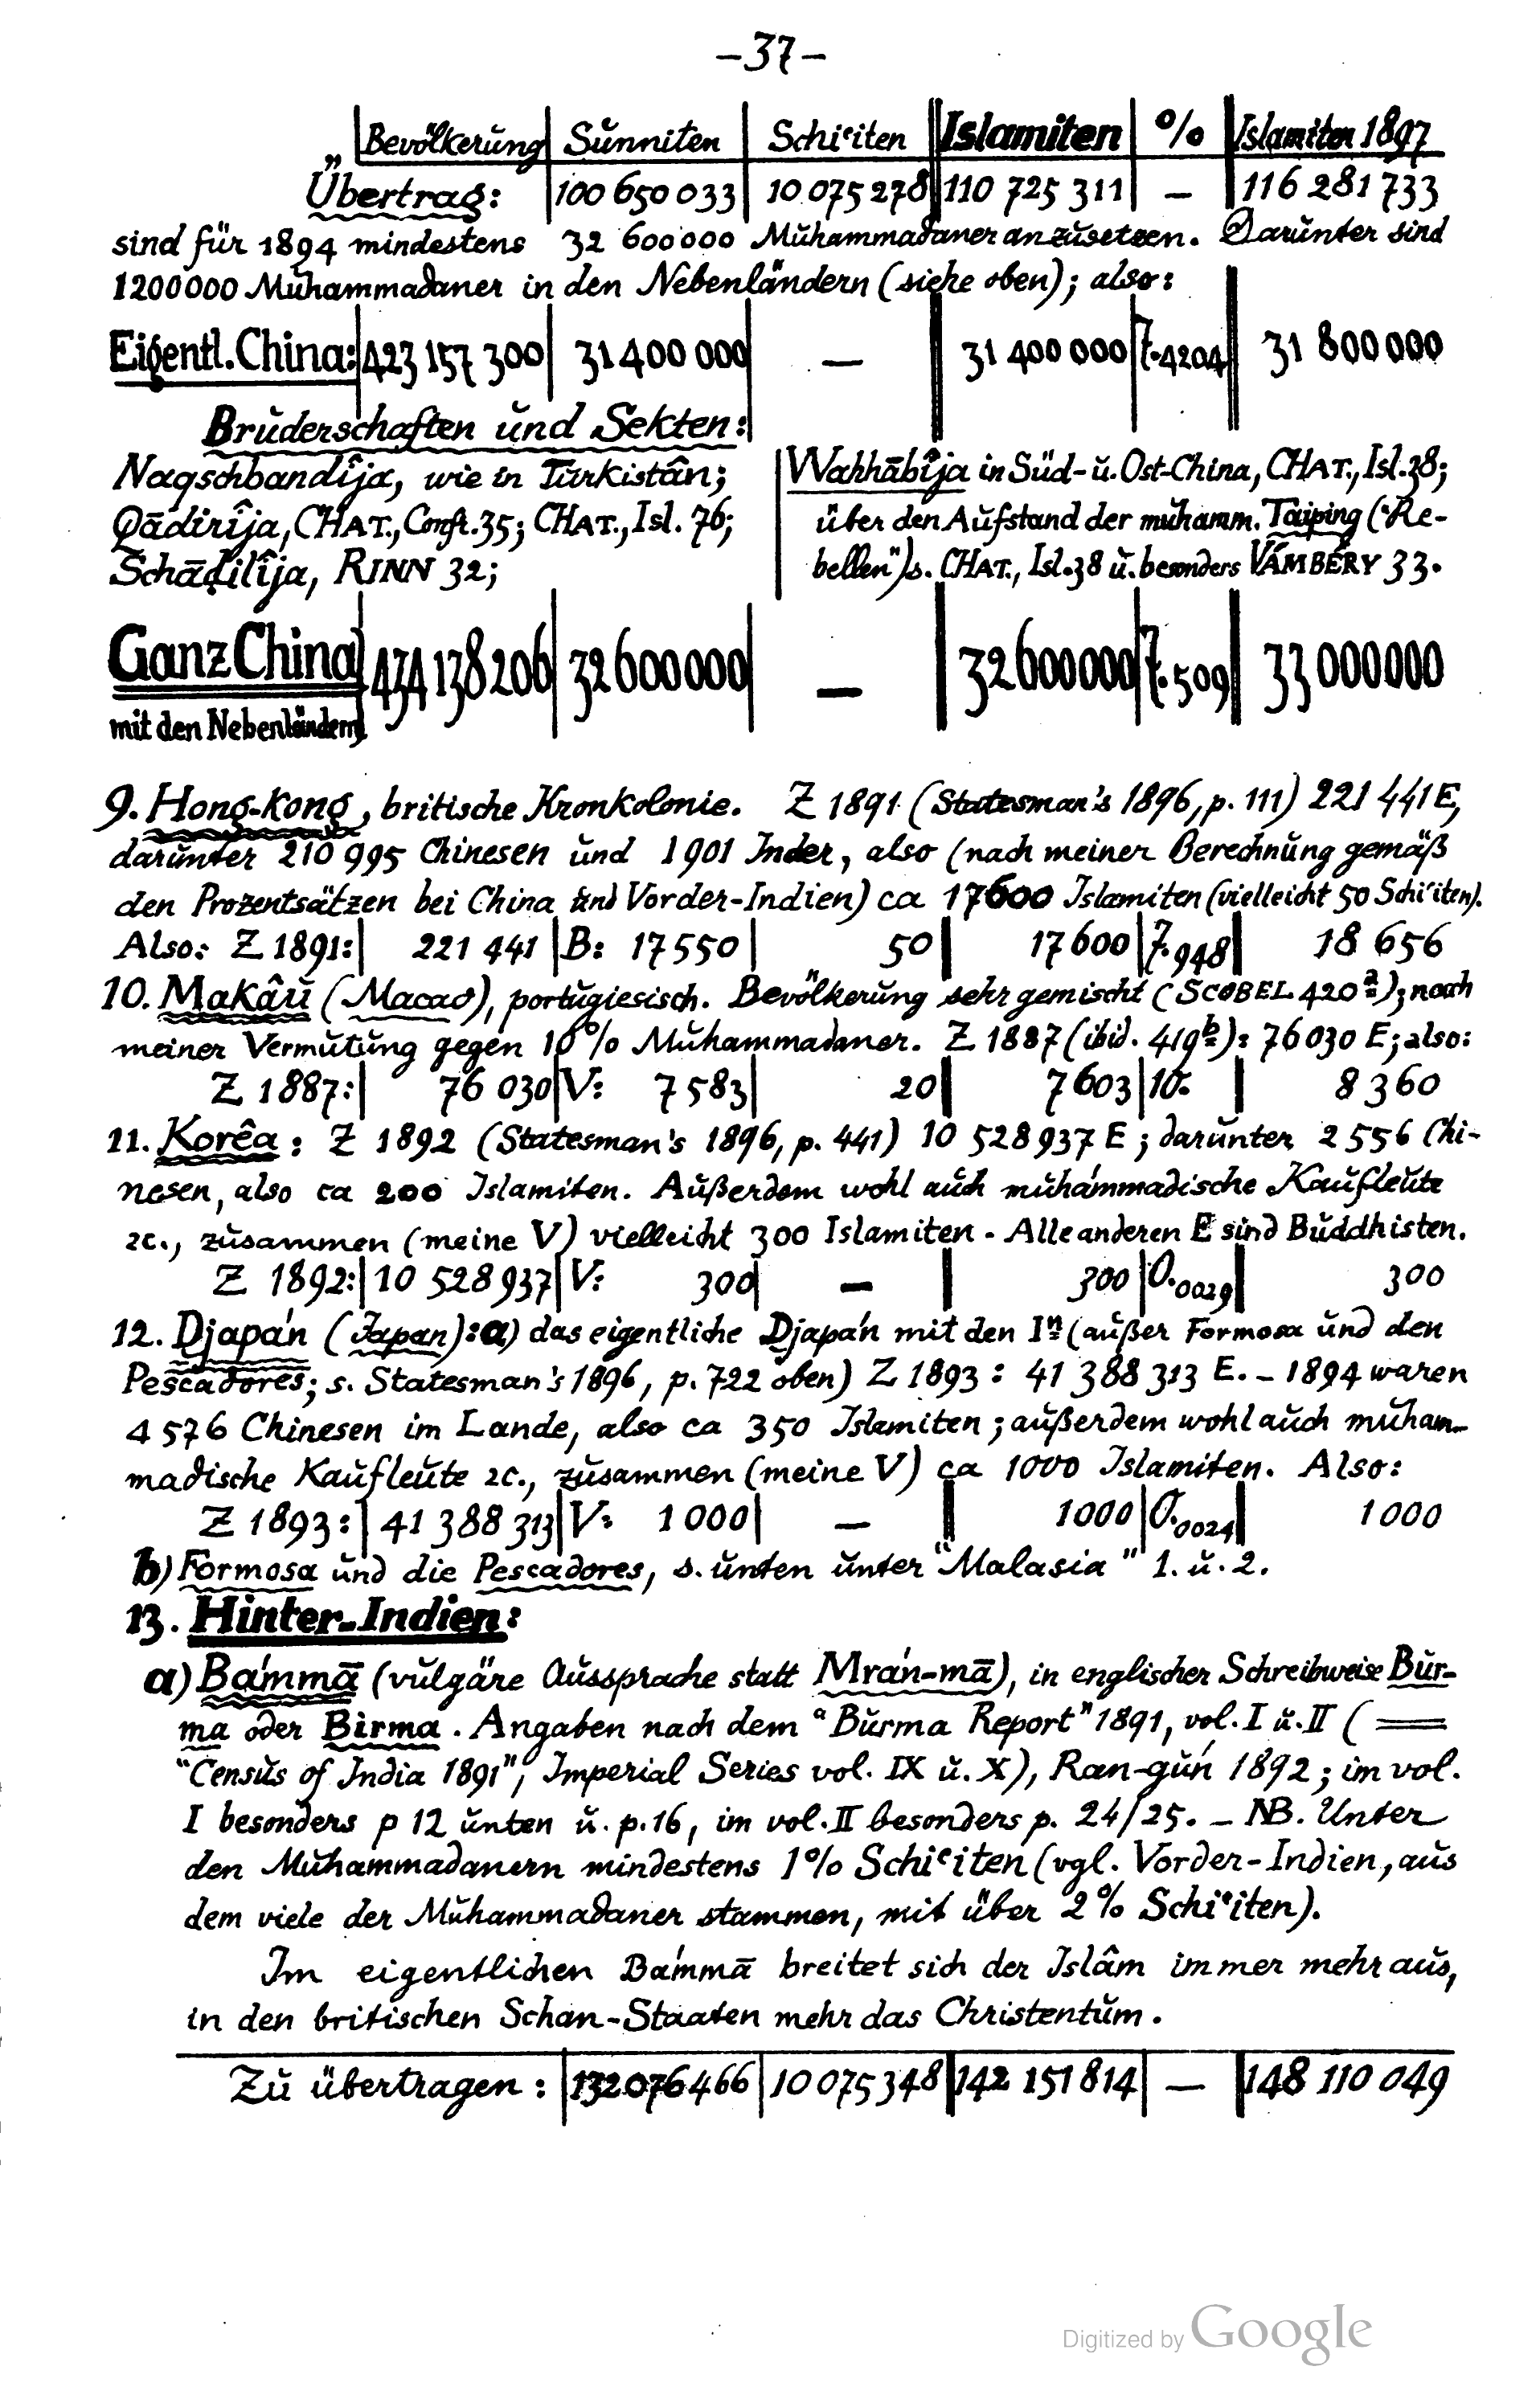 -37-
Bevölkerung Sunniten Schiʿiten Islamiten % Islamiten 1897
Übertrag: 100 650 033 10 075 278 110 725 311 — 116 281 733
sind für 1894 mindestens 32 600 000 Muhammadaner anzusetzen. Darunter sind
1200000 Muhammadaner in den Nebenländern (siehe oben); also:
Eigentl. China: 423 157 300 31 400 000 — 31 400 000 7.4204 31 800 000
Bruderschaften und Sekten:
Naqschbandîja, wie in Turkistân;
Qādirîja, CHAT., Confr. 35; CHAT., Isl. 76;
Schāḏilîja, RINN 32;
Wahhābîja in Süd- u. Ost-China, CHAT., Isl. 38;
über den Aufstand der muhamm. Taiping ("Re-
bellen") s. CHAT., Isl. 38 u. besonders VÁMBÉRY 33.
Ganz China 434 138 206 32 600 000 — 32 600 000 7.509 33 000 000
mit den Nebenländern
9. Hong-kong, britische Kronkolonie. Z 1891 (Statesman's 1896, p. 111) 221 441 E,
darunter 210 995 Chinesen und 1 901 Inder, also (nach meiner Berechnung gemäß
den Prozentsätzen bei China und Vorder-Indien) ca 17600 Islamiten (vielleicht 50 Schiʿiten).
Also: Z 1891: 221 441 B: 17 550 50 17 600 7.948 18 656
10. Makâu (Macao), portugiesisch. Bevölkerung sehr gemischt (SCOBEL 420a); nach
meiner Vermutung gegen 10% Muhammadaner. Z 1887 (ibid. 419b): 76 030 E; also:
Z 1887: 76 030 V: 7 583 20 7 603 10. 8 360
11. Korêa: Z 1892 (Statesman's 1896, p. 441) 10 528 937 E; darunter 2 556 Chi-
nesen, also ca 200 Islamiten. Außerdem wohl auch muhámmadische Kaufleute
ꝛc., zusammen (meine V) vielleicht 300 Islamiten - Alle anderen E sind Buddhisten.
Z 1892: 10 528 937 V: 300 — 300 0.0029 300
12. Djapán (Japan): a) das eigentliche Djapán mit den In (außer Formosa und den
Pescadores; s. Statesman's 1896, p. 722 oben) Z 1893: 41 388 313 E. - 1894 waren
4 576 Chinesen im Lande, also ca 350 Islamiten; außerdem wohl auch muham-
madische Kaufleute ꝛc., zusammen (meine V) ca 1000 Islamiten. Also:
Z 1893: 41 388 313 V: 1 000 — 1000 0.0024 1 000
b) Formosa und die Pescadores, s. unten unter "Malasia" 1. u. 2.
13. Hinter-Indien:
a) Bámmā (vulgäre Aussprache statt Mrán-mā), in englischer Schreibweise Bur-
ma oder Birma. Angaben nach dem "Burma Report" 1891, vol. I u. II (=
"Census of India 1891", Imperial Series vol. IX u. X), Ran-gún 1892; im vol.
I besonders p 12 unten u. p. 16, im vol. II besonders p. 24/25. - NB. Unter
den Muhammadanern mindestens 1% Schiʿiten (vgl. Vorder-Indien, aus
dem viele der Muhammadaner stammen, mit über 2% Schiʿiten).
Im eigentlichen Bámmā breitet sich der Islâm immer mehr aus,
in den britischen Schan-Staaten mehr das Christentum.
Zu übertragen: 132 076 466 10 075 348 142 151 814 — 148 110 049
Digitized by Google